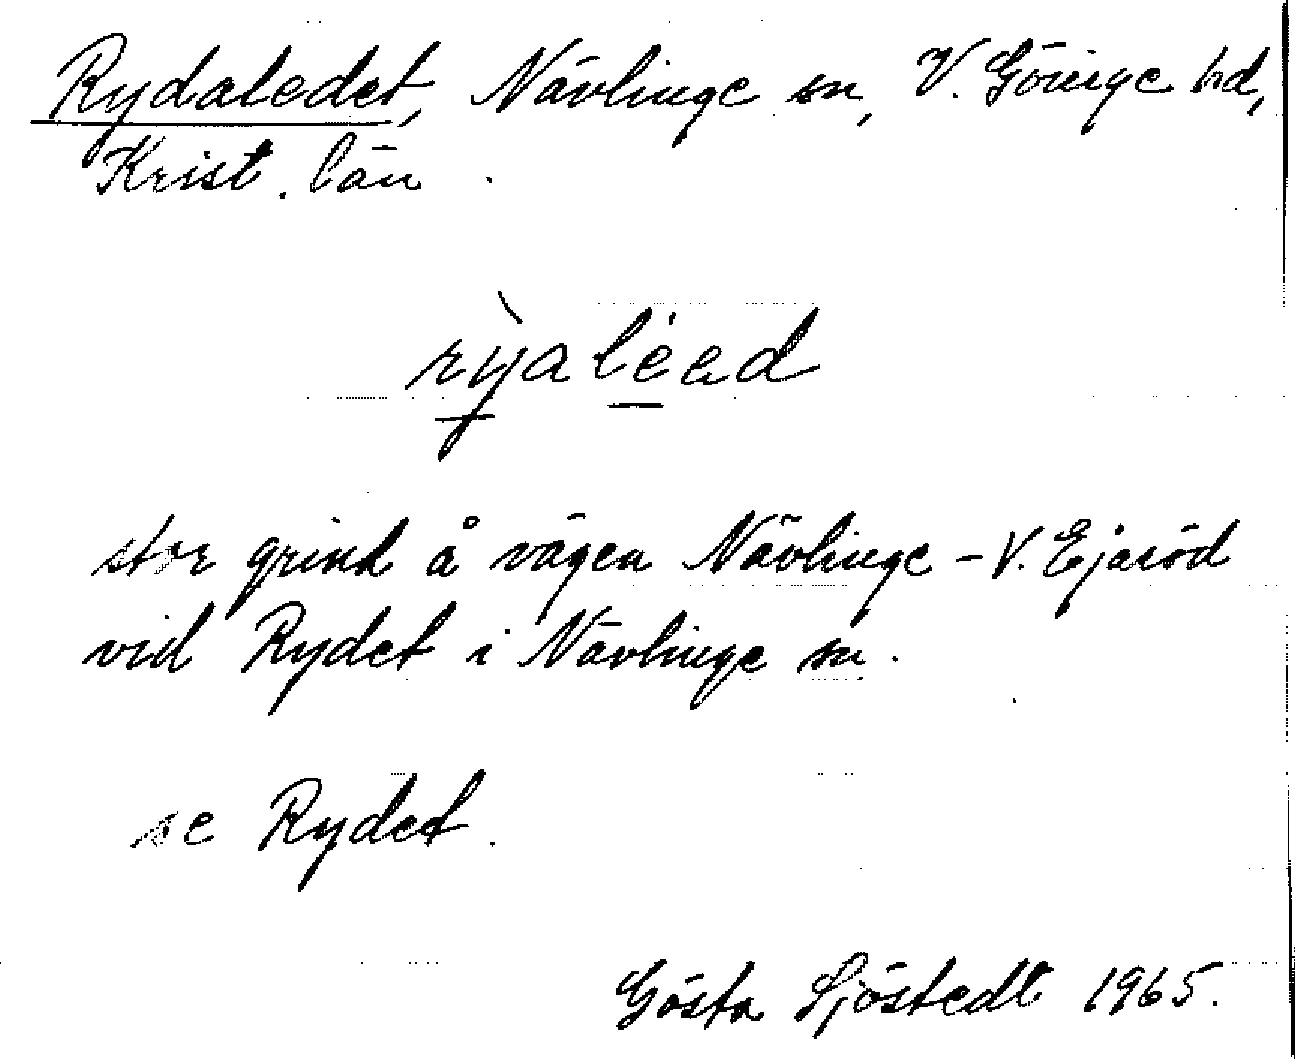 Rydaledet, Nävlinge sn, V. Göinge hd,
Krist. län.
rỳaléad
stor grind å vägen Nävlinge - V. Ejaröd
vid Rydet i Nävlinge sn.
se Rydet.
Gösta Sjöstedt 1965.